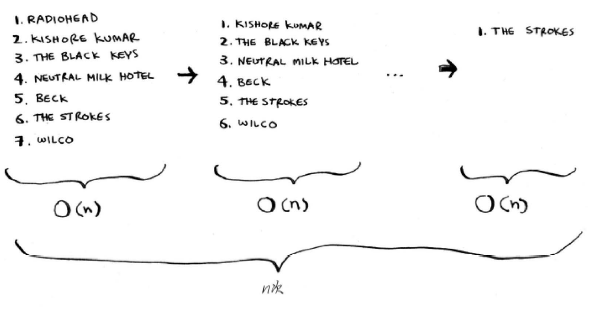 1. RADIOHEAD
2. KISHORE KUMAR
3. THE BLACK KEYS
4. NEUTRAL MILK HOTEL
5. BECK
6. THE STROKES
7. WILCO
→
1. KISHORE KUMAR
2. THE BLACK KEYS
3. NEUTRAL MILK HOTEL
4. BECK
5. THE STROKES
6. WILCO
...
1. THE STROKES
O(n)
O(n)
O(n)